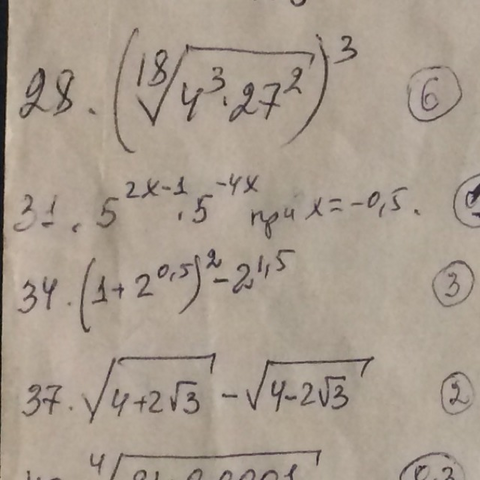 28. (¹⁸√(4³·27²))³ 6
31. 5^(2x-1)·5^(-4x) при x=-0,5.
34. (1+2^(0,5))²-2^(1,5) 3
37. √(4+2√3) - √(4-2√3) 2